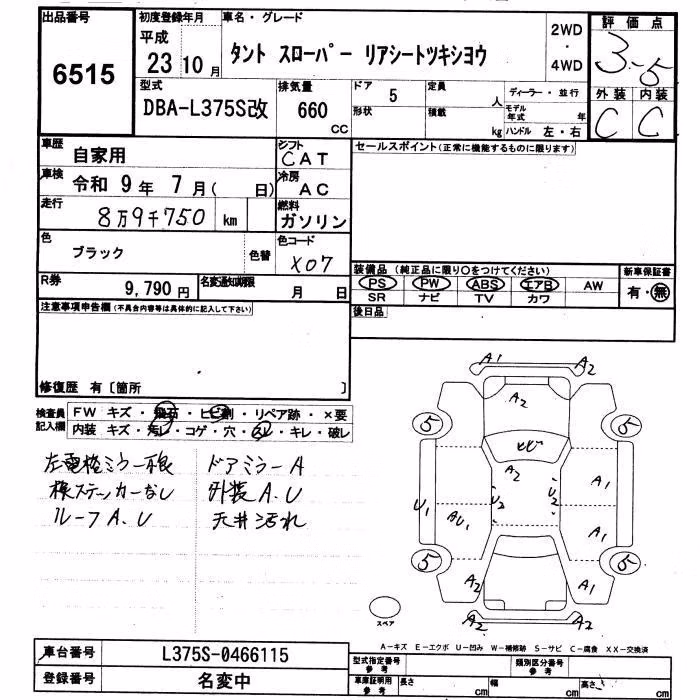 出品番号
6515
初度登録年月
平成
23 10 月
車名・グレード
タント スローパー リアシートツキシヨウ
2WD
・
4WD
評価点
3.5
外装 内装
C C
型式
DBA-L375S改
排気量
660
CC
ドア 5
形状
定員
人
積載
kg
ディーラー・並行
モデル年式 年
ハンドル 左・右
車歴 自家用
シフト
CAT
車検 令和 9 年 7 月( 日)
冷房
AC
走行
8万9千750 km
燃料
ガソリン
色
ブラック
色替
色コード
X07
R券
9,790 円
名変通知期限
月 日
セールスポイント(正常に機能するものに限ります)
装備品 (純正品に限り○をつけてください)
PS PW ABS エアB AW
SR ナビ TV カワ
新車保証書
有・無
後日品
注意事項申告欄(不具合内容等は具体的に記入して下さい)
修復歴 有〔箇所 〕
検査員記入欄
FW キズ・飛石・ヒビ割・リペア跡・×要
内装 キズ・汚レ・コゲ・穴・スレ・キレ・破レ
ドアミラーA
検ステッカーなし
外装A.U
ルーフA.U
天井汚れ
A1
A2
A2
5
5
ヒビ
A2
A1
U1
AU1
U2
U2
A1
5
5
A2
A1
A2
A2
スペア
A-キズ E-エクボ U-凹み W-補修跡 S-サビ C-腐食 XX-交換済
車台番号
L375S-0466115
登録番号
名変中
型式指定番号
参考
類別区分番号
参考
車庫証明用
参考
長さ
cm
幅
cm
高さ
cm